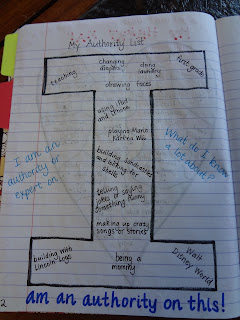 My Authority List
teaching
changing
diapers
doing
laundry
first grade
drawing faces
using iPad
and iPhone
playing Mario
Kart on Wii
building sandcastles
and looking for
shells
telling
jokes or saying
something funny
making up crazy
songs or stories
I am an
authority or
expert on...
What do I know
a lot about?
building with
Lincoln Logs
being a
mommy
Walt
Disney World
2
am an authority on this!